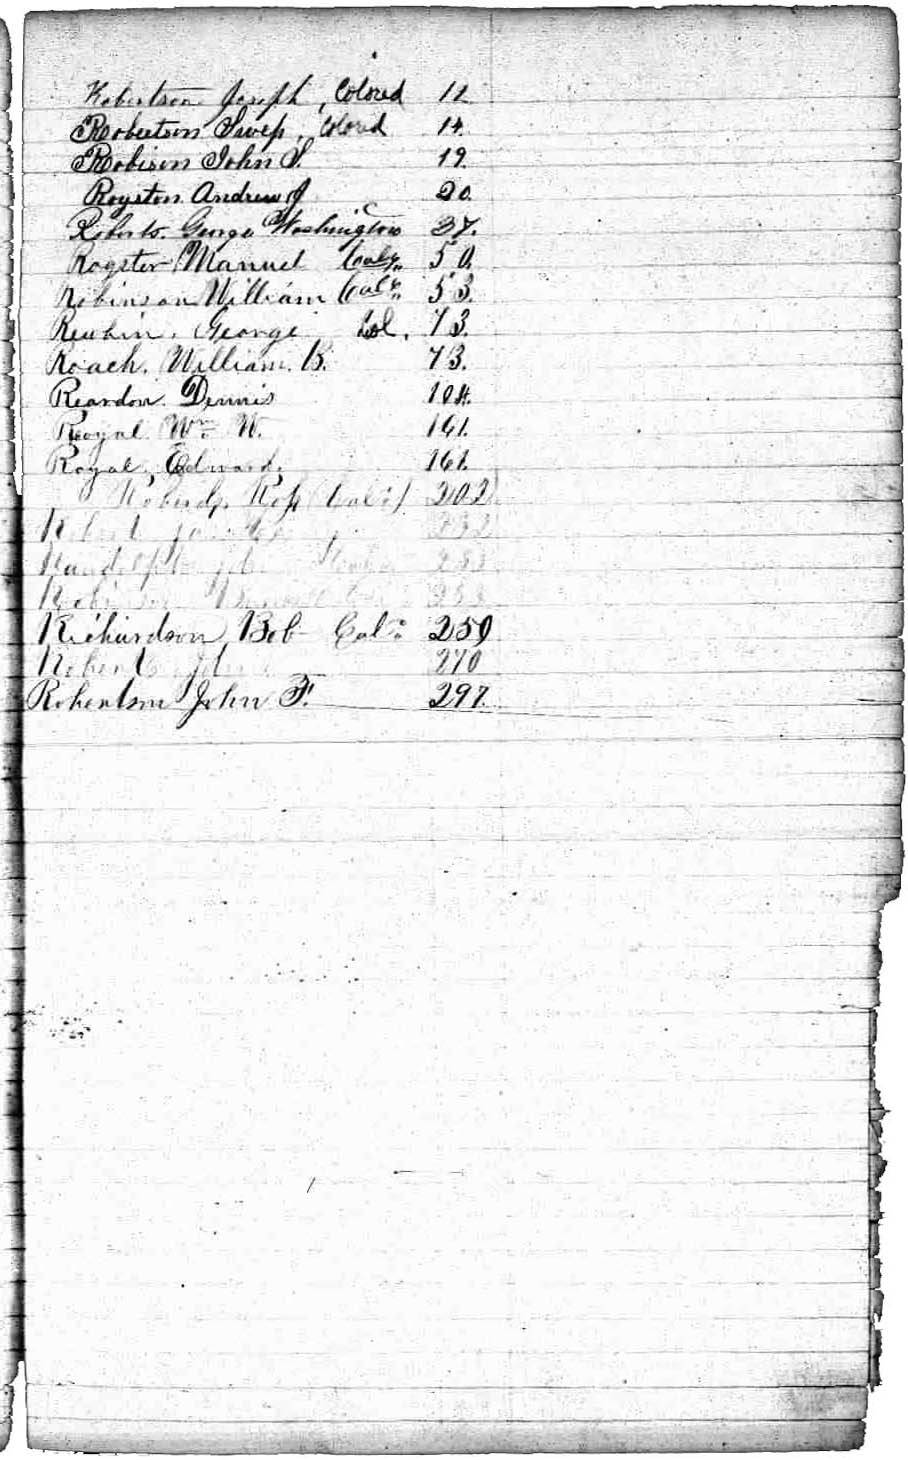 Robertson Joseph, Colored 12
Robertson Swep, Colored 14.
Robison John S. 19.
Royston Andrew J 20.
Roberts. George Washington 37.
Rogster Manuel Cold. 50.
Robinson William Cold. 53.
Reubin. George Col. 73.
Roach. William. B. 73.
Reardon. Dennis 104.
Royal. Wm. W. 161.
Royal. Edward. 161.
Roberts, Ross (Cold) 202
232
Randolph
Richardson Bob Cold 259
Roberts John 270
Robertson John F. 297.